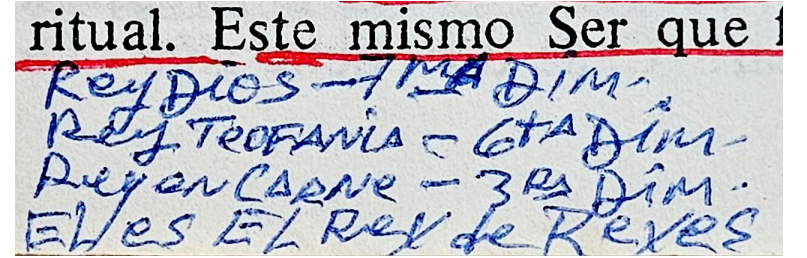 ritual. Este mismo Ser que f
Rey Dios - 7MA DIM.
Rey TEOFANIA = 6tA DIM.
Rey en CARNE - 3RA DIM.
EL es EL Rey de Reyes